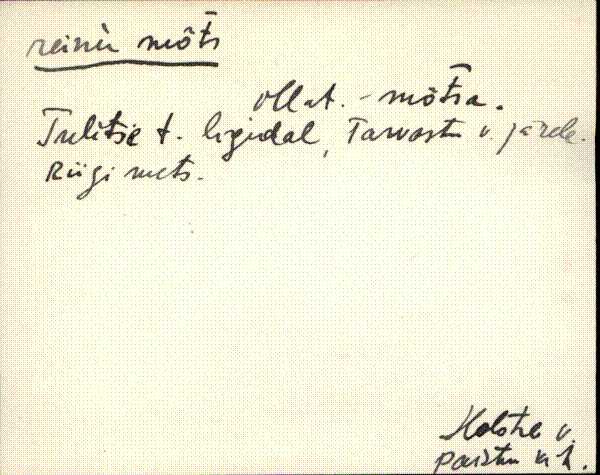 reinu mõts
ollat. - mõtsa.
Tulitse t. ligidal, Tarvastu v. järele.
Riigi mets.
Holstre v.
Paistu kh.